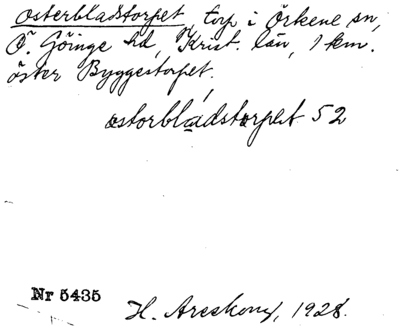 osterbladstorpet, torp i Örkene sn,
Ö. Göinge hd, Krist. län, 1 km.
öster Byggestorpet.
ostorbladstorpet 52
Nr 5435
H. Areskoug, 1928.